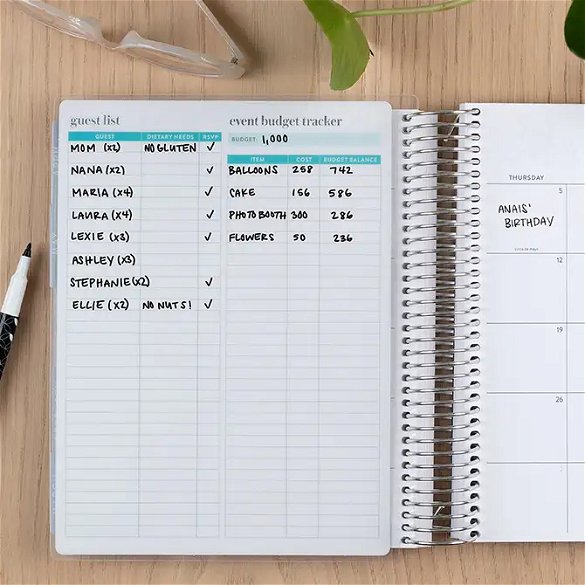 guest list
GUEST DIETARY NEEDS RSVP
MOM (x2) NO GLUTEN ✓
NANA (x2) ✓
MARIA (x4) ✓
LAURA (x4) ✓
LEXIE (x3) ✓
ASHLEY (x3)
STEPHANIE (x2) ✓
ELLIE (x2) NO NUTS! ✓
event budget tracker
BUDGET: 1,000
ITEM COST BUDGET BALANCE
BALLOONS 258 742
CAKE 156 586
PHOTO BOOTH 300 286
FLOWERS 50 236
THURSDAY
5
ANAIS'
BIRTHDAY
Cinco de Mayo
12
19
26